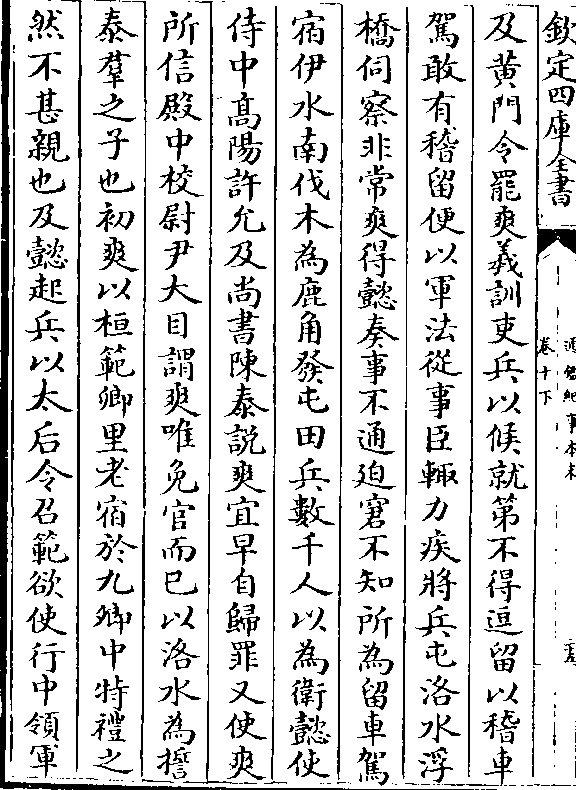 欽定四庫全書
通鑑紀事本末
卷十下
及黄門令罷爽羲訓吏兵以候就第不得逗留以稽車
駕敢有稽留便以軍法從事臣輒力疾將兵屯洛水浮
橋伺察非常爽得懿奏事不通迫窘不知所為留車駕
宿伊水南伐木為鹿角發屯田兵數千人以為衛懿使
侍中髙陽許允及尚書陳泰說爽宜早自歸罪又使爽
所信殿中校尉尹大目謂爽唯免官而已以洛水為誓
泰羣之子也初爽以桓範鄉里老宿於九卿中特禮之
然不甚親也及懿起兵以太后令召範欲使行中領軍